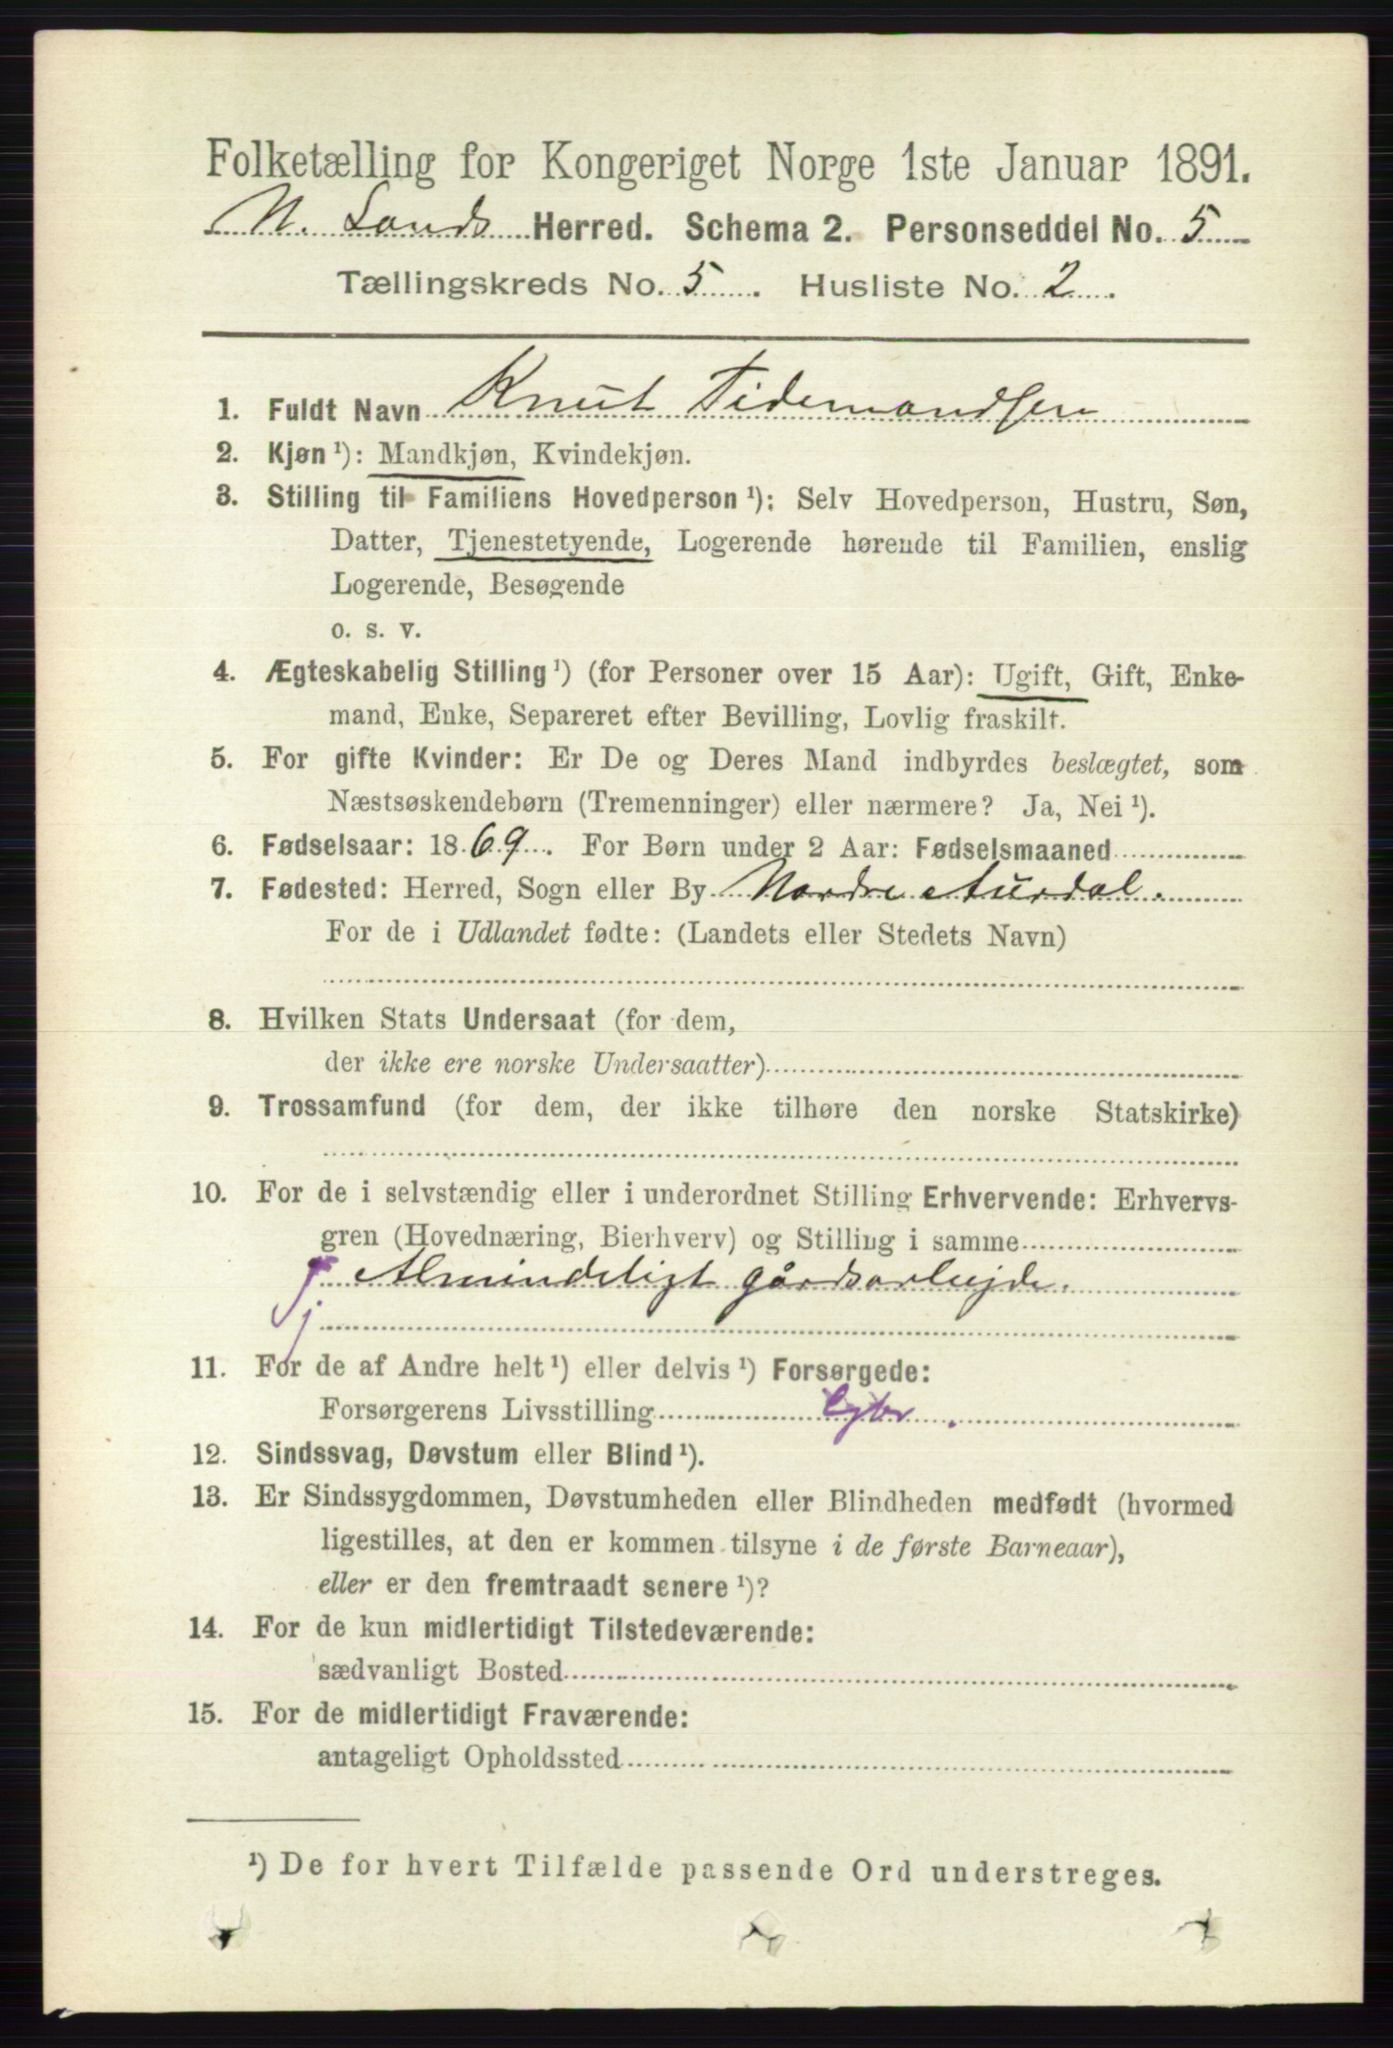 Folketælling for Kongeriget Norge 1ste Januar 1891.
N. Lands Herred. Schema 2. Personseddel No. 5
Tællingskreds No. 5. Husliste No. 2.
1. Fuldt Navn Knut Tidemandsen
2. Kjøn ¹): Mandkjøn, Kvindekjøn.
3. Stilling til Familiens Hovedperson ¹): Selv Hovedperson, Hustru, Søn,
Datter, Tjenestetyende, Logerende hørende til Familien, enslig
Logerende, Besøgende
o. s. v.
4. Ægteskabelig Stilling ¹) (for Personer over 15 Aar): Ugift, Gift, Enke-
mand, Enke, Separeret efter Bevilling, Lovlig fraskilt.
5. For gifte Kvinder: Er De og Deres Mand indbyrdes beslægtet, som
Næstsøskendebørn (Tremenninger) eller nærmere? Ja, Nei ¹).
6. Fødselsaar: 1869. For Børn under 2 Aar: Fødselsmaaned
7. Fødested: Herred, Sogn eller By Nordre Aurdal.
For de i Udlandet fødte: (Landets eller Stedets Navn)
8. Hvilken Stats Undersaat (for dem,
der ikke ere norske Undersaatter)
9. Trossamfund (for dem, der ikke tilhøre den norske Statskirke)
10. For de i selvstændig eller i underordnet Stilling Erhvervende: Erhvervs-
gren (Hovednæring, Bierhverv) og Stilling i samme
Almindeligt gårdsarbejde.
11. For de af Andre helt ¹) eller delvis ¹) Forsørgede:
Forsørgerens Livsstilling
12. Sindssvag, Døvstum eller Blind ¹).
13. Er Sindssygdommen, Døvstumheden eller Blindheden medfødt (hvormed
ligestilles, at den er kommen tilsyne i de første Barneaar),
eller er den fremtraadt senere ¹)?
14. For de kun midlertidigt Tilstedeværende:
sædvanligt Bosted
15. For de midlertidigt Fraværende:
antageligt Opholdssted
¹) De for hvert Tilfælde passende Ord understreges.